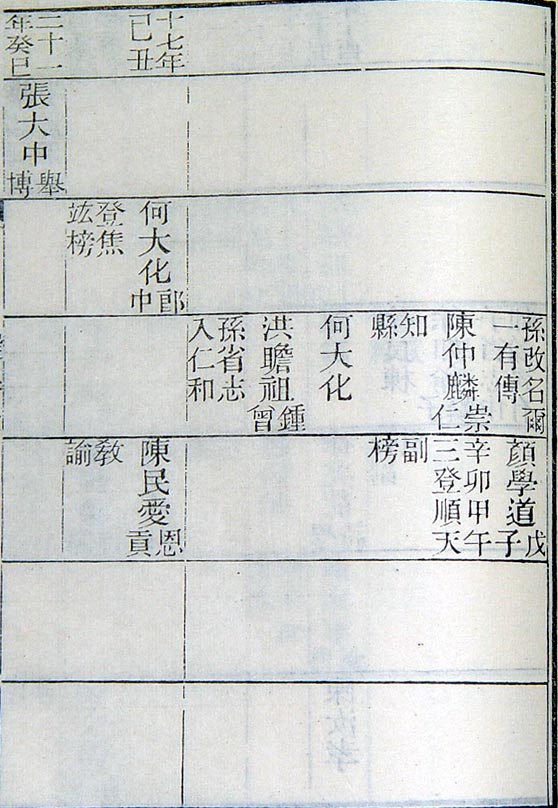 十七年
己丑
二十一
年癸巳
張大中舉
博
何大化郎
中
登焦
竑榜
孫改名爾
一有傳
陳仲麟崇
仁
知
縣
何大化
洪瞻祖鍾
曾
孫省志
入仁和
顏學道戊
子
辛卯甲午
三登順天
副
榜
陳民愛恩
貢
教
諭